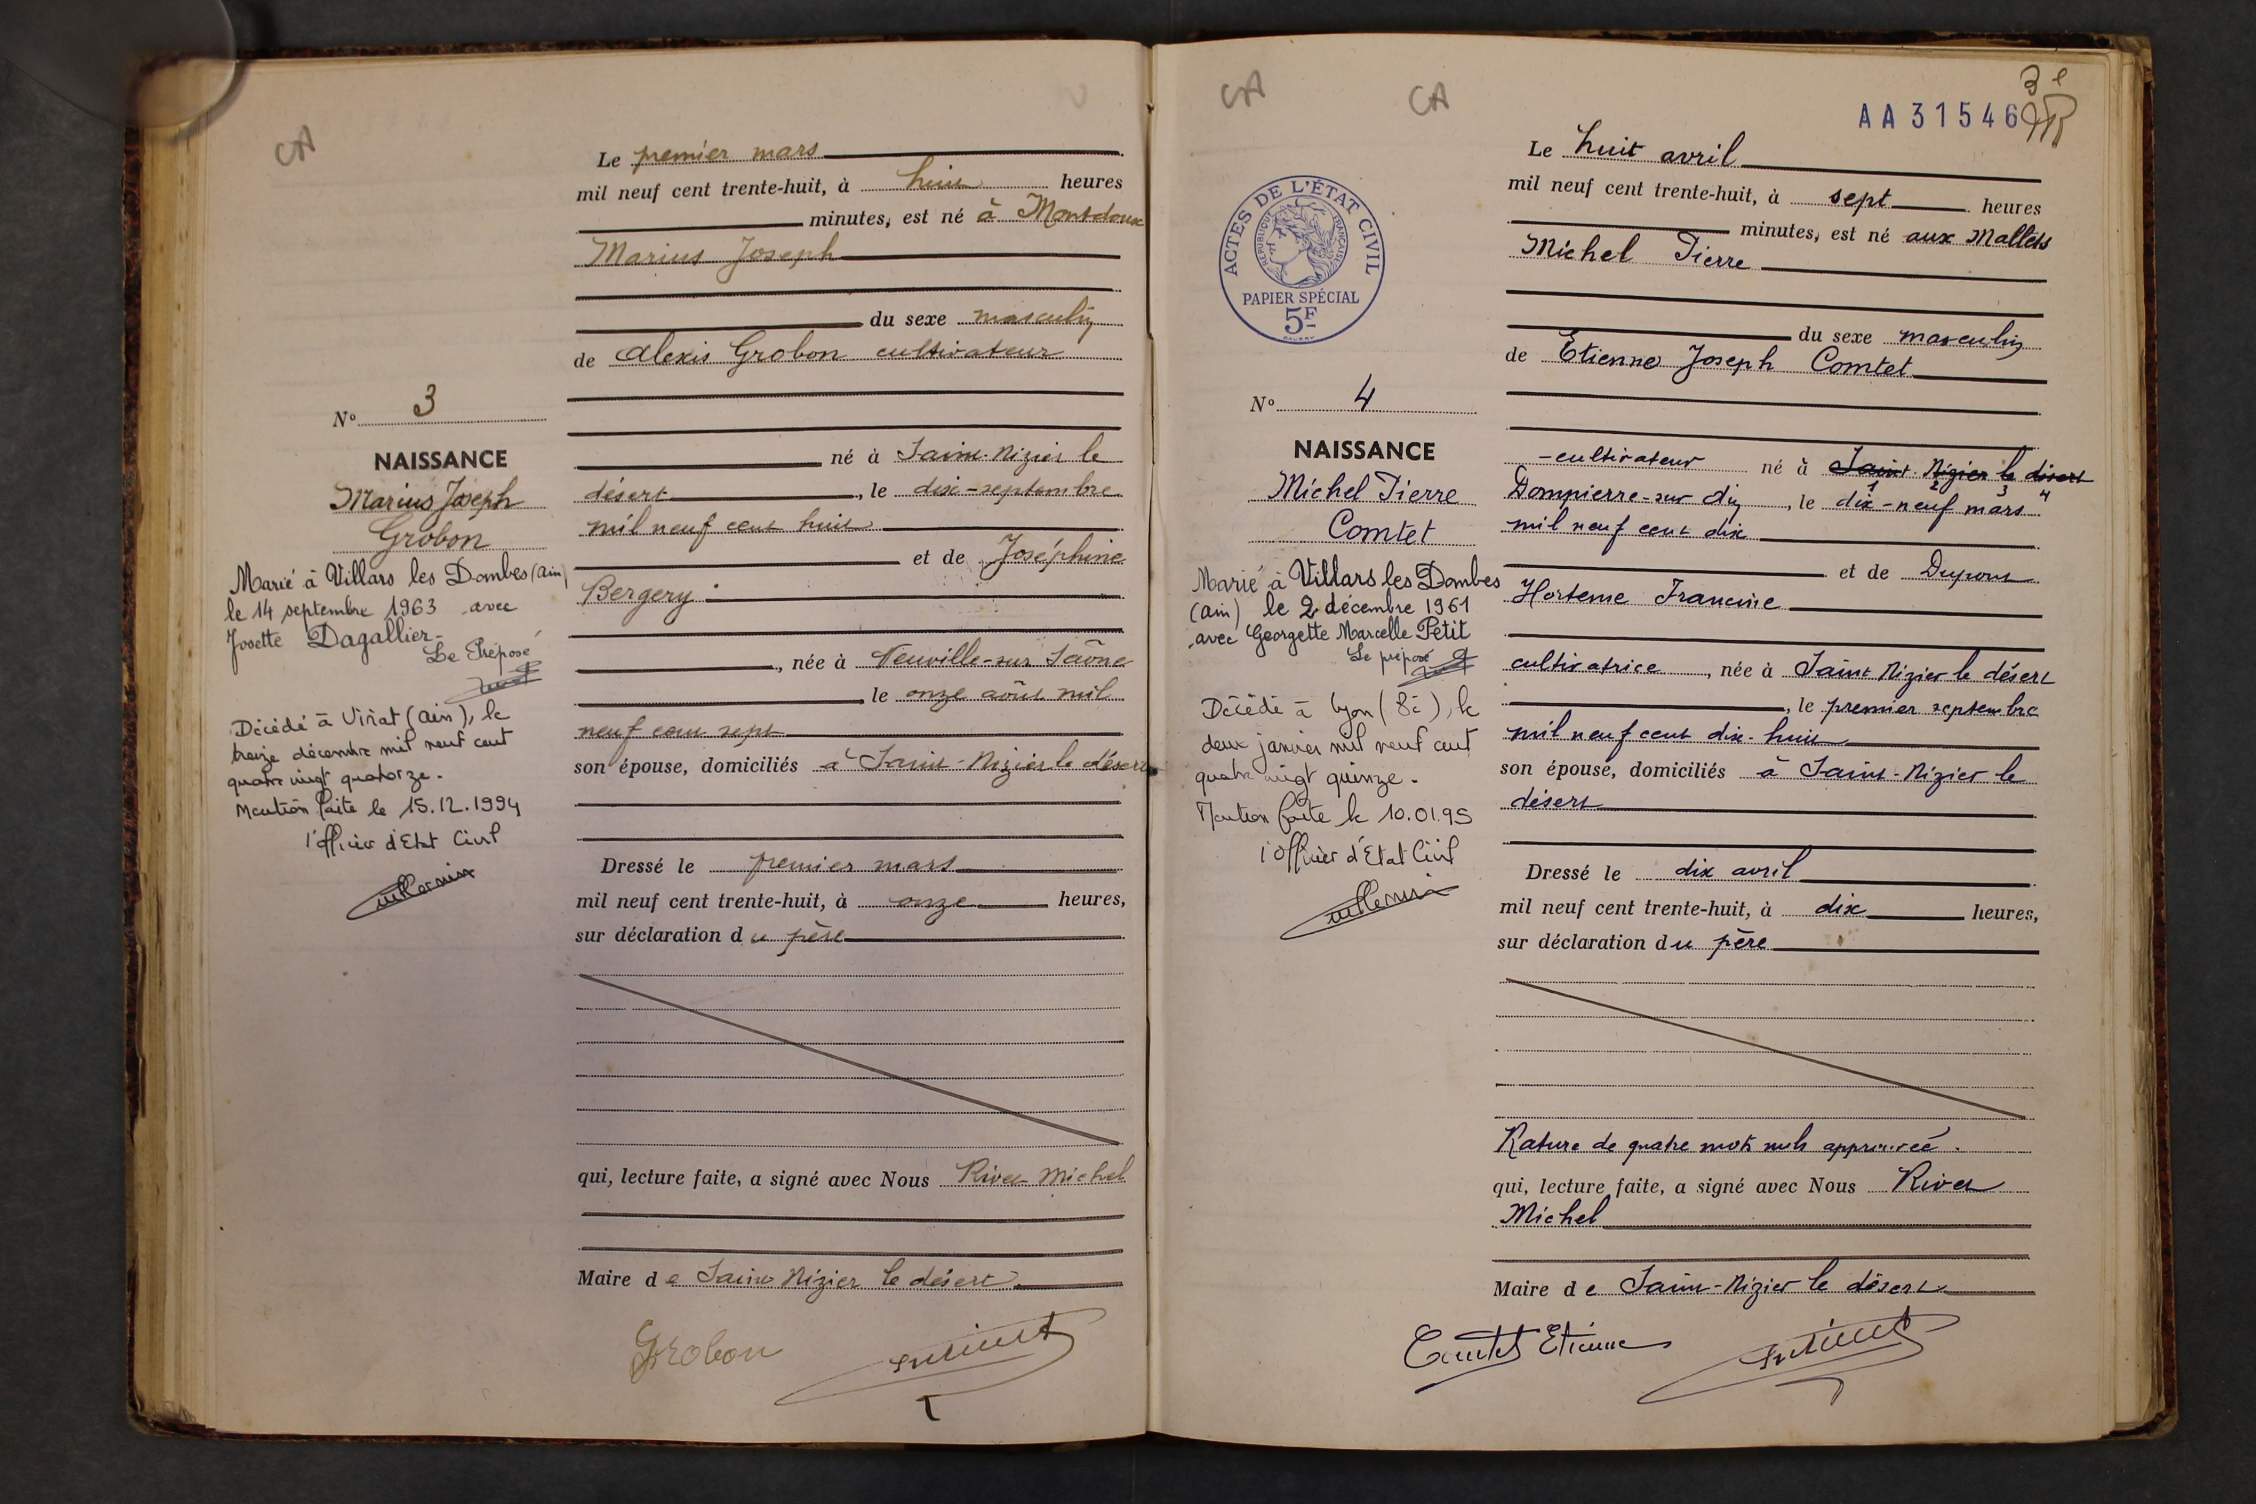 CA
Le premier mars
mil neuf cent trente-huit, à huit heures
minutes, est né à Montdoux
Marius Joseph
du sexe masculin
de Alexis Grobon cultivateur
N° 3
NAISSANCE
Marius Joseph
Grobon
né à Saint-Nizier le
désert, le dix-septembre
mil neuf cent huit
et de Joséphine
Bergery
Marié à Villars les Dombes (ain)
le 14 septembre 1963 avec
Josette Dagallier-
Le Préposé
née à Neuville-sur Saône
le onze août mil
neuf cent sept
son épouse, domiciliés à Saint-Nizier le désert
Décédé à Viriat (ain), le
treize décembre mil neuf cent
quatre vingt quatorze.
Mention faite le 15.12.1994
l'officier d'Etat Civil
Dressé le premier mars
mil neuf cent trente-huit, à onze heures,
sur déclaration du père
qui, lecture faite, a signé avec Nous Rivet Michel
Maire de Saint Nizier le désert
Grobon
CA CA
3e
AA31546
Le huit avril
mil neuf cent trente-huit, à sept heures
minutes, est né aux Mallets
Michel Pierre
ACTES DE L'ÉTAT CIVIL
RÉPUBLIQUE FRANÇAISE
PAPIER SPÉCIAL
5F
du sexe masculin
de Etienne Joseph Comtet
N° 4
NAISSANCE
Michel Pierre
Comtet
-cultivateur né à Saint Nizier le désert
1 2 3 4
Dompierre-sur ain, le dix-neuf mars
mil neuf cent dix
et de Dupont
Hortense Francine
Marié à Villars les Dombes
(ain) le 2 décembre 1961
avec Georgette Marcelle Petit
Le préposé
cultivatrice, née à Saint Nizier le désert
, le premier septembre
mil neuf cent dix-huit
son épouse, domiciliés à Saint-Nizier le
désert
Décédé à Lyon (8è), le
deux janvier mil neuf cent
quatre vingt quinze.
Mention faite le 10.01.95
l'officier d'Etat Civil
Dressé le dix avril
mil neuf cent trente-huit, à dix heures,
sur déclaration du père
Rature de quatre mots nuls approuvée.
qui, lecture faite, a signé avec Nous Rivet
Michel
Maire de Saint-Nizier le désert
Comtet Etienne